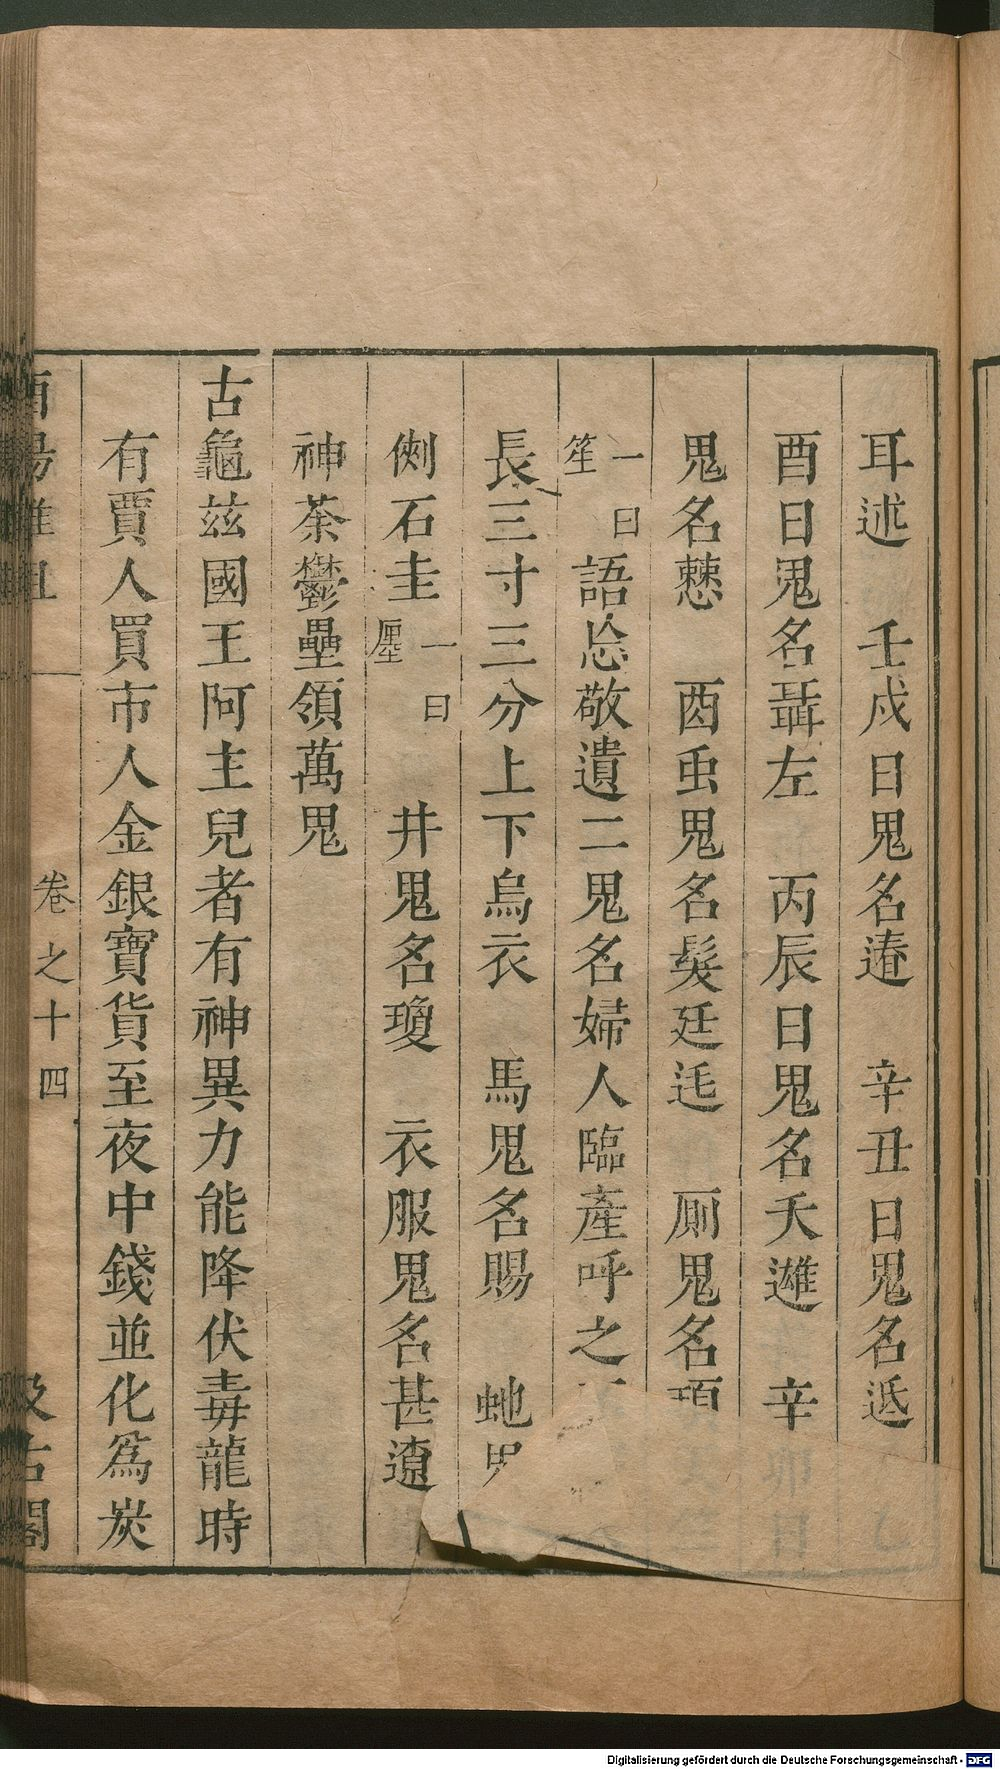 耳述　壬戍日鬼名䢱　辛丑日鬼名遞
酉日鬼名聶左　丙辰日鬼名天遳　辛
鬼名㦬　酉虫鬼名髮廷迋　厠鬼名頊
一曰笙語忩敬遺二鬼名婦人臨產呼之
長三寸三分上下烏衣　馬鬼名賜　虵
側石圭一曰㕓　井鬼名瓊　衣服鬼名甚遼
神荼鬱壘領萬鬼
古龜玆國王阿主兒者有神異力能降伏毒龍時
有賈人買市人金銀寶貨至夜中錢並化爲炭
卷之十四
Digitalisierung gefördert durch die Deutsche Forschungsgemeinschaft - DFG